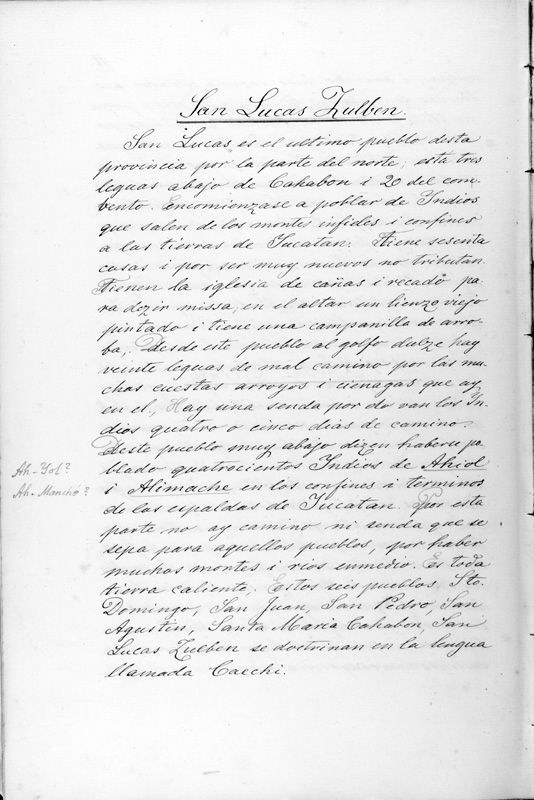 San Lucas Zulben.
San Lucas es el ultimo pueblo desta
provincia por la parte del norte, esta tres
leguas abajo de Cahabon i 20 del com-
bento. Encomienzase a poblar de Indios
que salen de los montes infides i confines
a las tierras de Iucatan. Tiene sesenta
casas i por ser muy nuevos no tributan.
Tienen la iglesia de cañas i recado pa
ra dezir missa, en el altar un lienzo viejo
pintado i tiene una campanilla de arro-
ba,. Desde este pueblo al golfo dulze hay
veinte leguas de mal camino por las mu-
chas cuestas arroyos i cienagas que ay
en el. Hay una senda por do van los In-
dios quatro o cinco dias de camino.
Deste pueblo muy abajo dizen haberse po-
blado quatrocientos Indios de Ahiol
Ah-Yol?
i Alimache en los confines i terminos
Ah-Manché?
de las espaldas de Iucatan. Por esta
parte no ay camino ni senda que se
sepa para aquellos pueblos, por haber
muchos montes i rios enmedio. Es toda
tierra caliente. Estos seis pueblos, Sto.
Domingo, San Juan, San Pedro, San
Agustin, Santa Maria Cahabon, San
Lucas Zulben se doctrinan en la lengua
llamada Caechi.